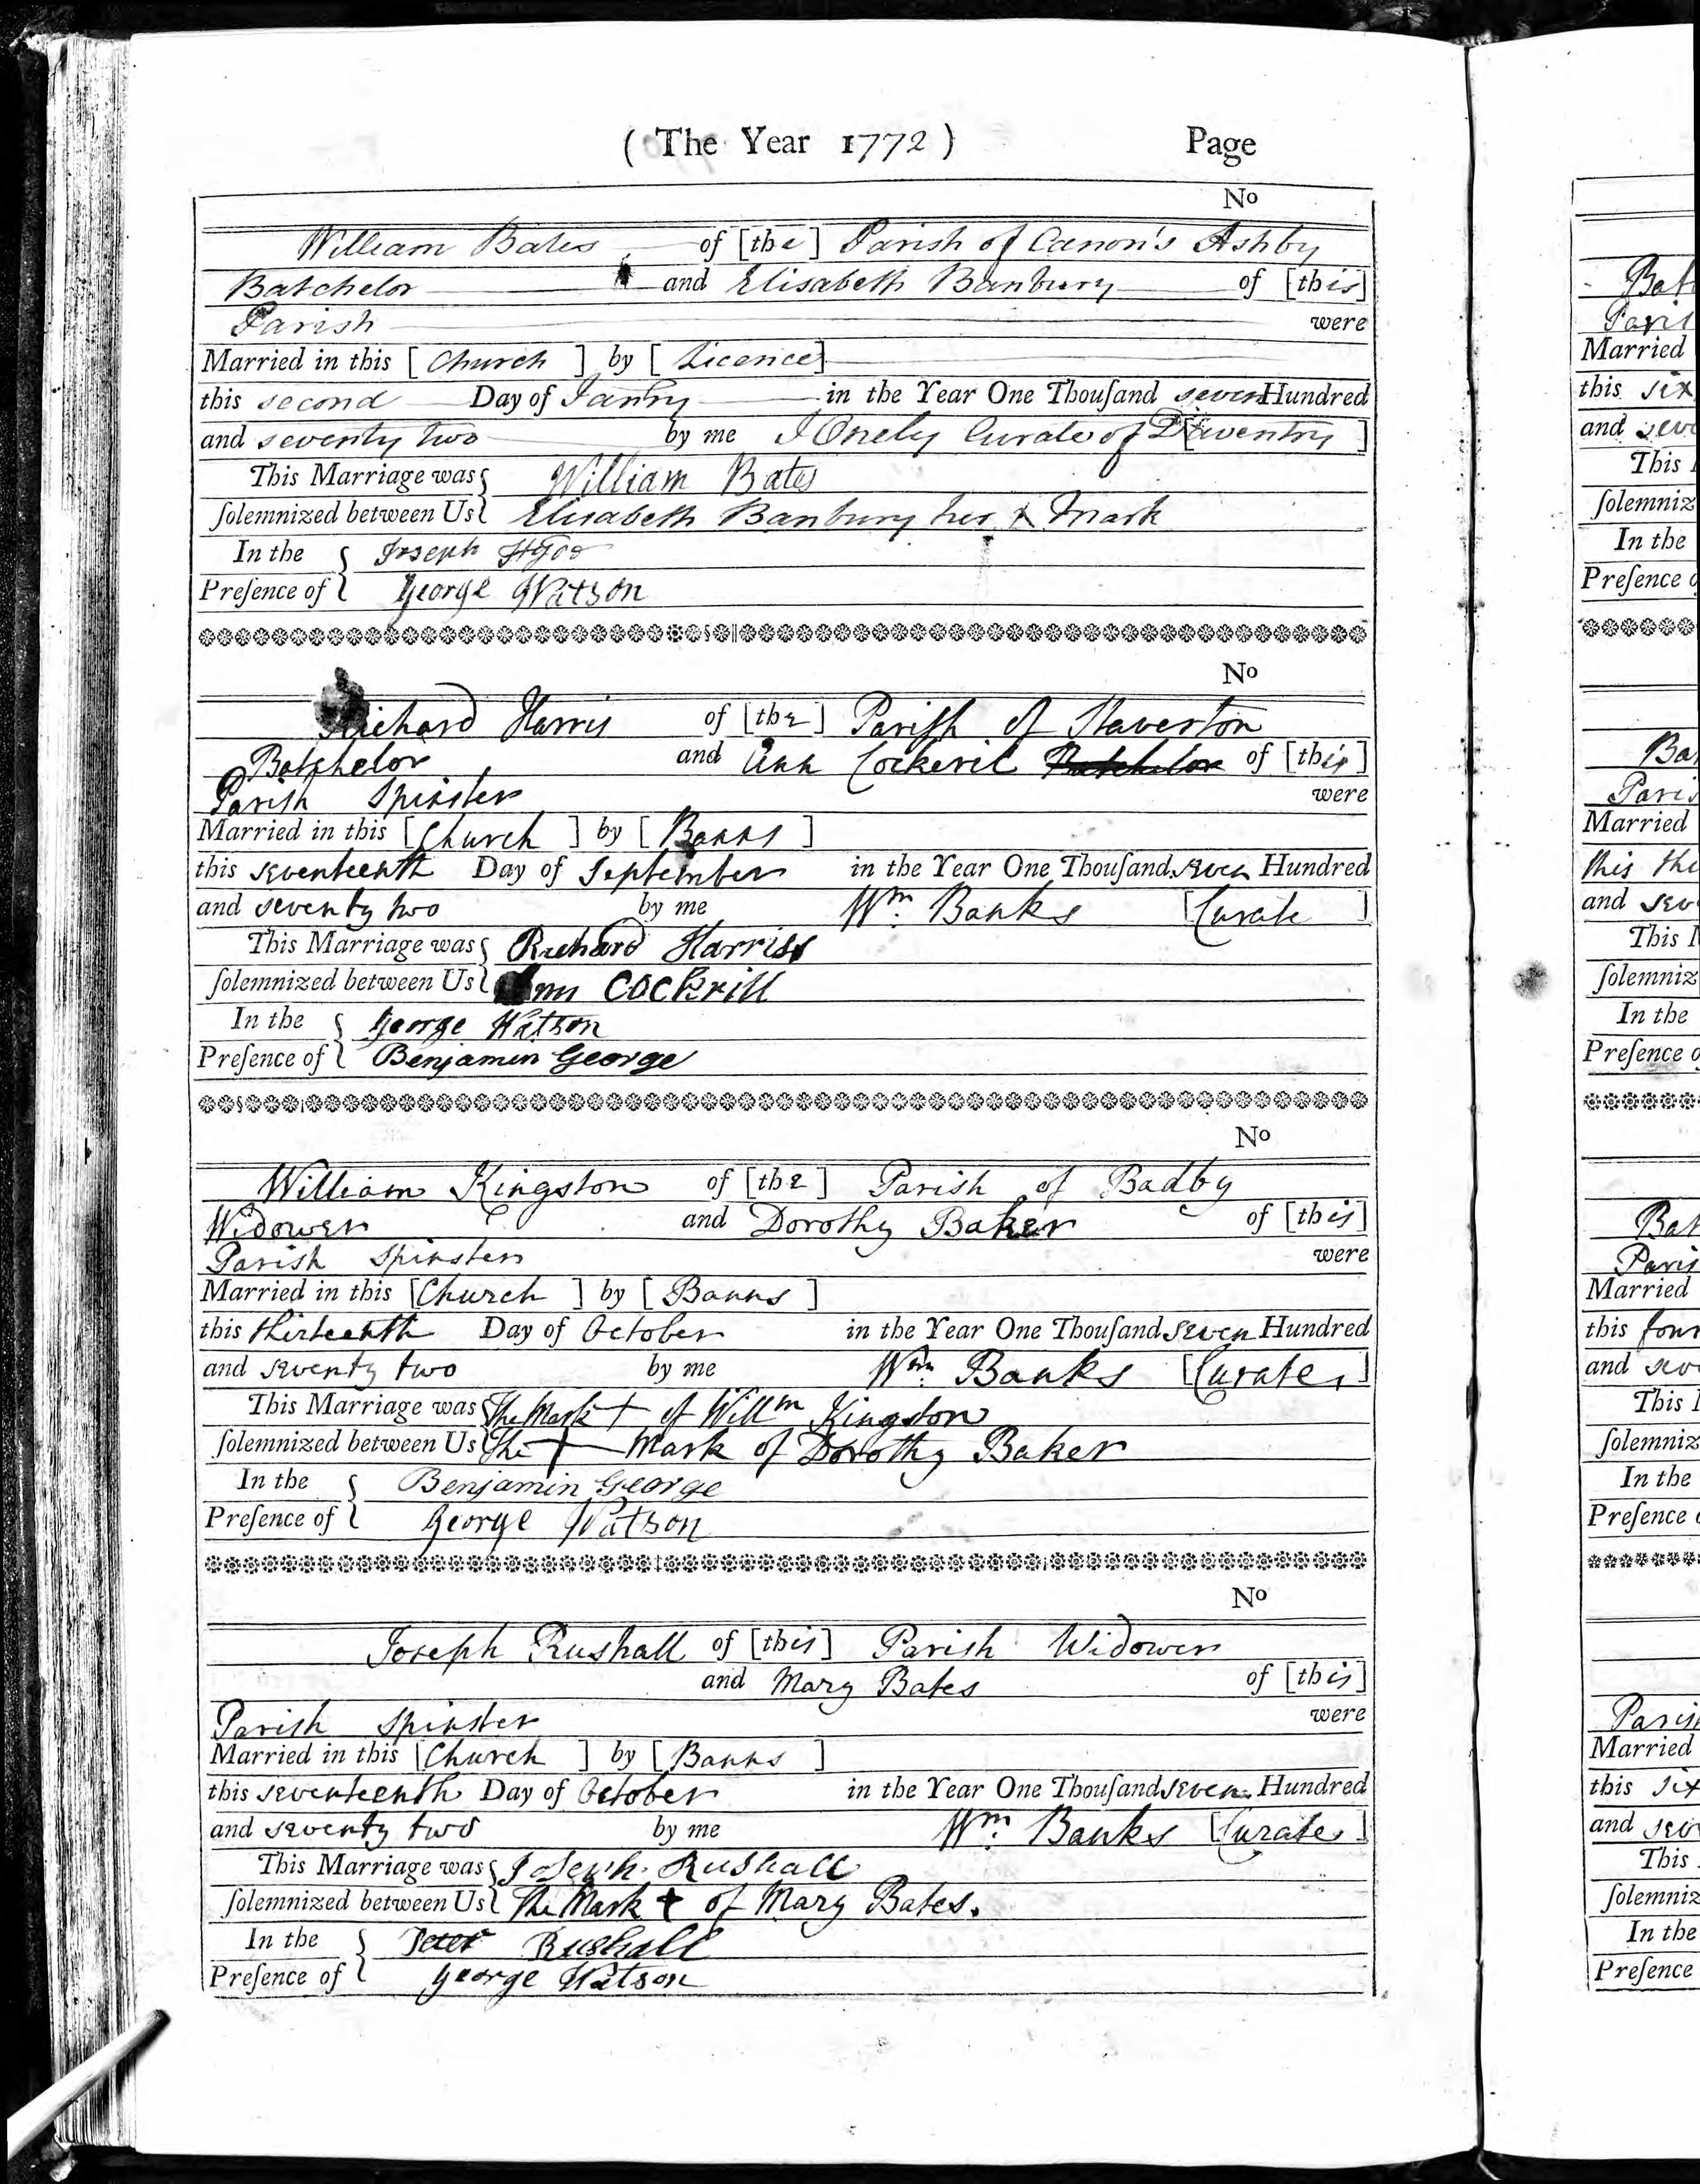 ( The Year 1772 ) Page
No
William Bates of [the] Parish of Canon's Ashby
Batchelor and Elisabeth Banbury of [this]
Parish were
Married in this [Church] by [Licence]
this second Day of Janry in the Year One Thouſand seven Hundred
and seventy two by me J Onely Curate of D[aventry]
This Marriage was William Bates
ſolemnized between Us Elisabeth Banbury her X Mark
In the Joseph
Preſence of George Watson
No
Richard Harris of [the] Pariſh of Staverton
Batchelor and Ann Cockeril Batchelor of [this]
Parish Spinster were
Married in this [Church] by [Banns]
this seventeenth Day of September in the Year One Thouſand seven Hundred
and seventy two by me Wm. Banks [Curate]
This Marriage was Richard Harriss
ſolemnized between Us Ann COCkrill
In the George Watson
Preſence of Benjamin George
No
William Kingston of [the] Parish of Badby
Widower and Dorothy Baker of [this]
Parish Spinster were
Married in this [Church] by [Banns]
this thirteenth Day of October in the Year One Thouſand seven Hundred
and seventy two by me Wm. Banks [Curate]
This Marriage was The Mark + of Willm Kingston
ſolemnized between Us The + Mark of Dorothy Baker
In the Benjamin George
Preſence of George Watson
No
Joseph Rushall of [this] Parish Widower
and Mary Bates of [this]
Parish Spinster were
Married in this [Church] by [Banns]
this seventeenth Day of October in the Year One Thouſand seven Hundred
and seventy two by me Wm. Banks [Curate]
This Marriage was Joseph Rushall
ſolemnized between Us The Mark + of Mary Bates.
In the Peter Rushall
Preſence of George Watson
Bat
Paris
Married
this six
and seve
This
ſolemniz
In the
Preſence o
Ba
Paris
Married
this thi
and sev
This M
ſolemniz
In the
Preſence o
Bat
Paris
Married
this four
and sev
This
ſolemniz
In the
Preſence
Paris
Married
this six
and sev
This
ſolemniz
In the
Preſence